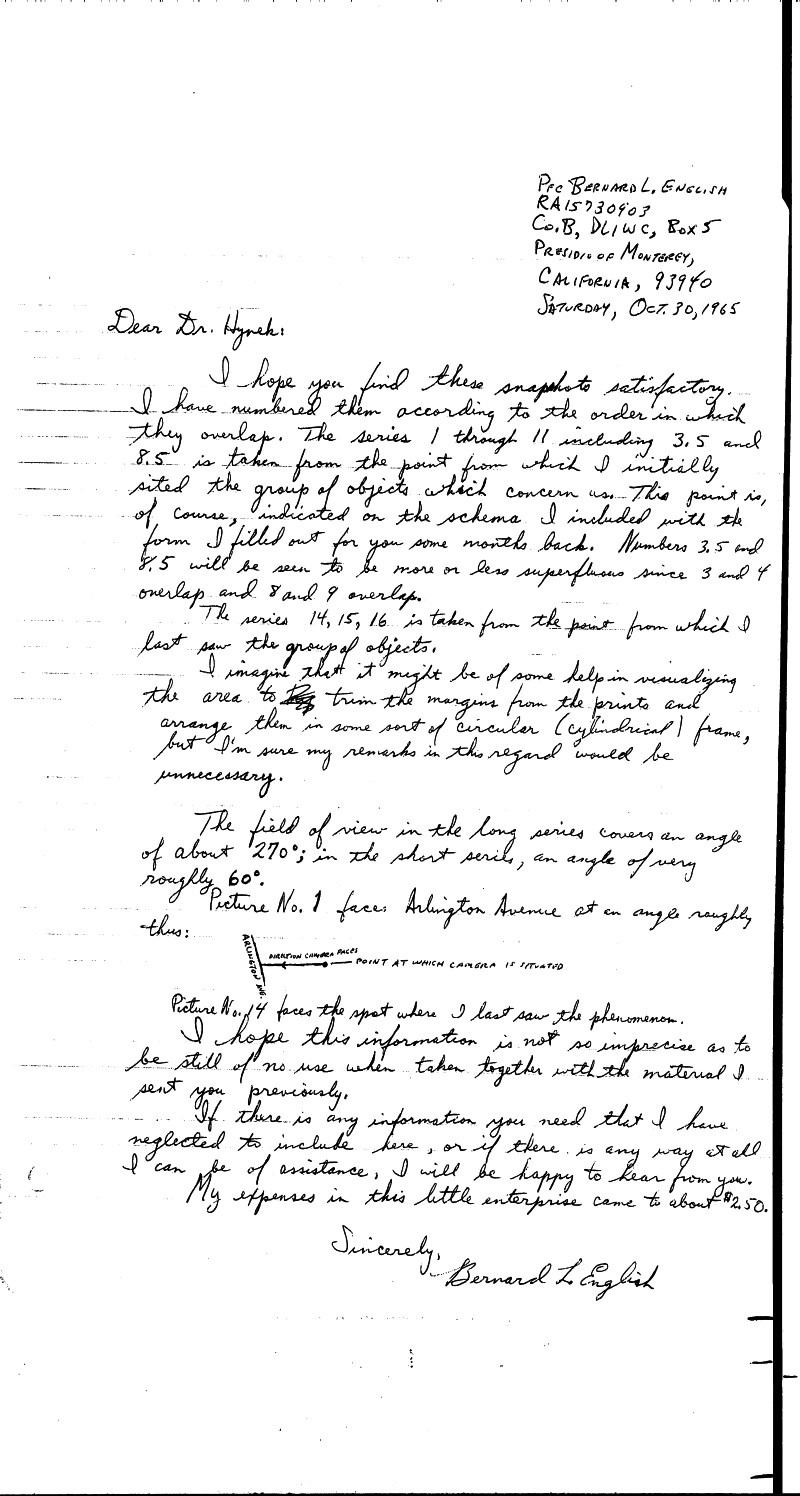 Pfc BERNARD L. ENGLISH
RA15730903
Co.B, DLIWC, Box 5
PRESIDIO OF MONTEREY,
CALIFORNIA, 93940
SATURDAY, OCT. 30, 1965
Dear Dr. Hynek:
I hope you find these snapshots satisfactory.
I have numbered them according to the order in which
they overlap. The series 1 through 11 including 3.5 and
8.5 is taken from the point from which I initially
sited the group of objects which concern us. This point is,
of course, indicated on the schema I included with the
form I filled out for you some months back. Numbers 3.5 and
8.5 will be seen to be more or less superfluous since 3 and 4
overlap and 8 and 9 overlap.
The series 14, 15, 16 is taken from the point from which I
last saw the group of objects.
I imagine that it might be of some help in visualizing
the area to trim the margins from the prints and
arrange them in some sort of circular (cylindrical) frame,
but I'm sure my remarks in this regard would be
unnecessary.
The field of view in the long series covers an angle
of about 270°; in the short series, an angle of very
roughly 60°.
Picture No. 1 faces Arlington Avenue at an angle roughly
thus:
ARLINGTON AVE.
DIRECTION CAMERA FACES
POINT AT WHICH CAMERA IS SITUATED
Picture No. 14 faces the spot where I last saw the phenomenon.
I hope this information is not so imprecise as to
be still of no use when taken together with the material I
sent you previously.
If there is any information you need that I have
neglected to include here, or if there is any way at all
I can be of assistance, I will be happy to hear from you.
My expenses in this little enterprise came to about $2.50.
Sincerely,
Bernard L. English